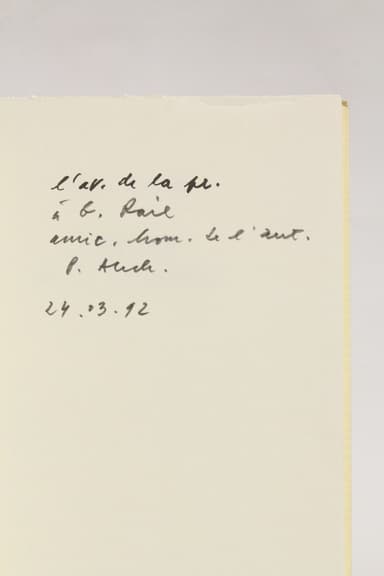 l'av. de la pr.
à G. Rail
amic. hom. de l'aut.
P. Alech.
24.03.92